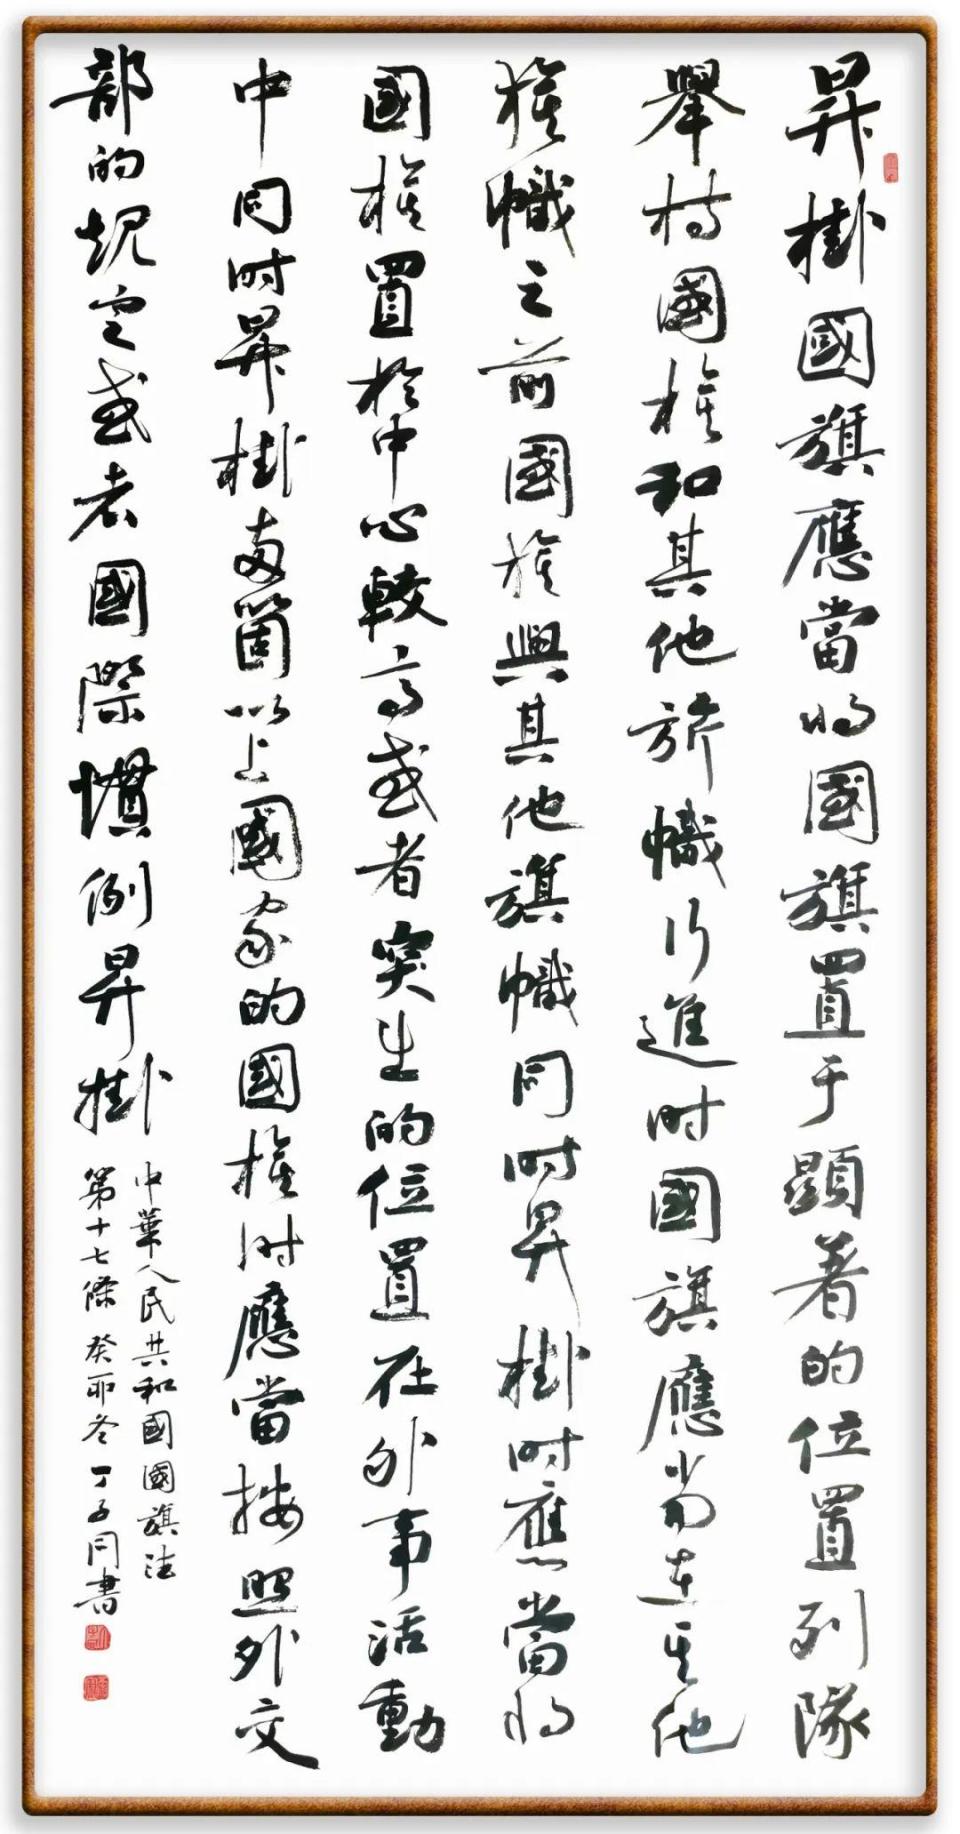 昇掛國旗應當将國旗置于顯著的位置列隊
舉持國旗和其他旂幟行進时國旗應当在其他
旗幟之前國旗與其他旗幟同时昇掛时應當将
國旗置於中心較高或者突出的位置在外事活動
中同时昇掛两箇以上國家的國旗时應當按照外交
部的规定或者國際慣例昇掛
中華人民共和國國旗法
第十七條癸卯冬丁子同書